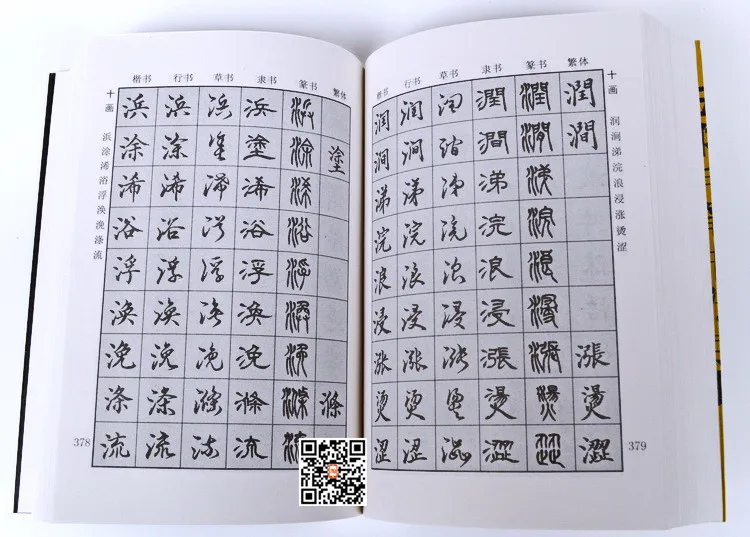 楷书 行书 草书 隶书 篆书 繁体
十画
浜涂浠浴浮涣浼涤流
浜 浜 浜 浜 浜
涂 涂 涂 塗 涂 塗
浠 浠 浠 浠 浠
浴 浴 浴 浴 浴
浮 浮 浮 浮 浮
涣 涣 涣 涣 涣
浼 浼 浼 浼 浼
涤 涤 滌 滌 滌 滌
流 流 流 流
378
楷书 行书 草书 隶书 篆书 繁体
十画
润涧涕浣浪浸涨烫涩
润 润 润 潤 潤 潤
涧 涧 涧 澗 澗 澗
涕 涕 涕 涕 涕
浣 浣 浣 浣 浣
浪 浪 浪 浪 浪
浸 浸 浸 浸 浸
涨 涨 涨 漲 漲 漲
烫 烫 烫 燙 燙 燙
涩 涩 澀 澀 澀
379